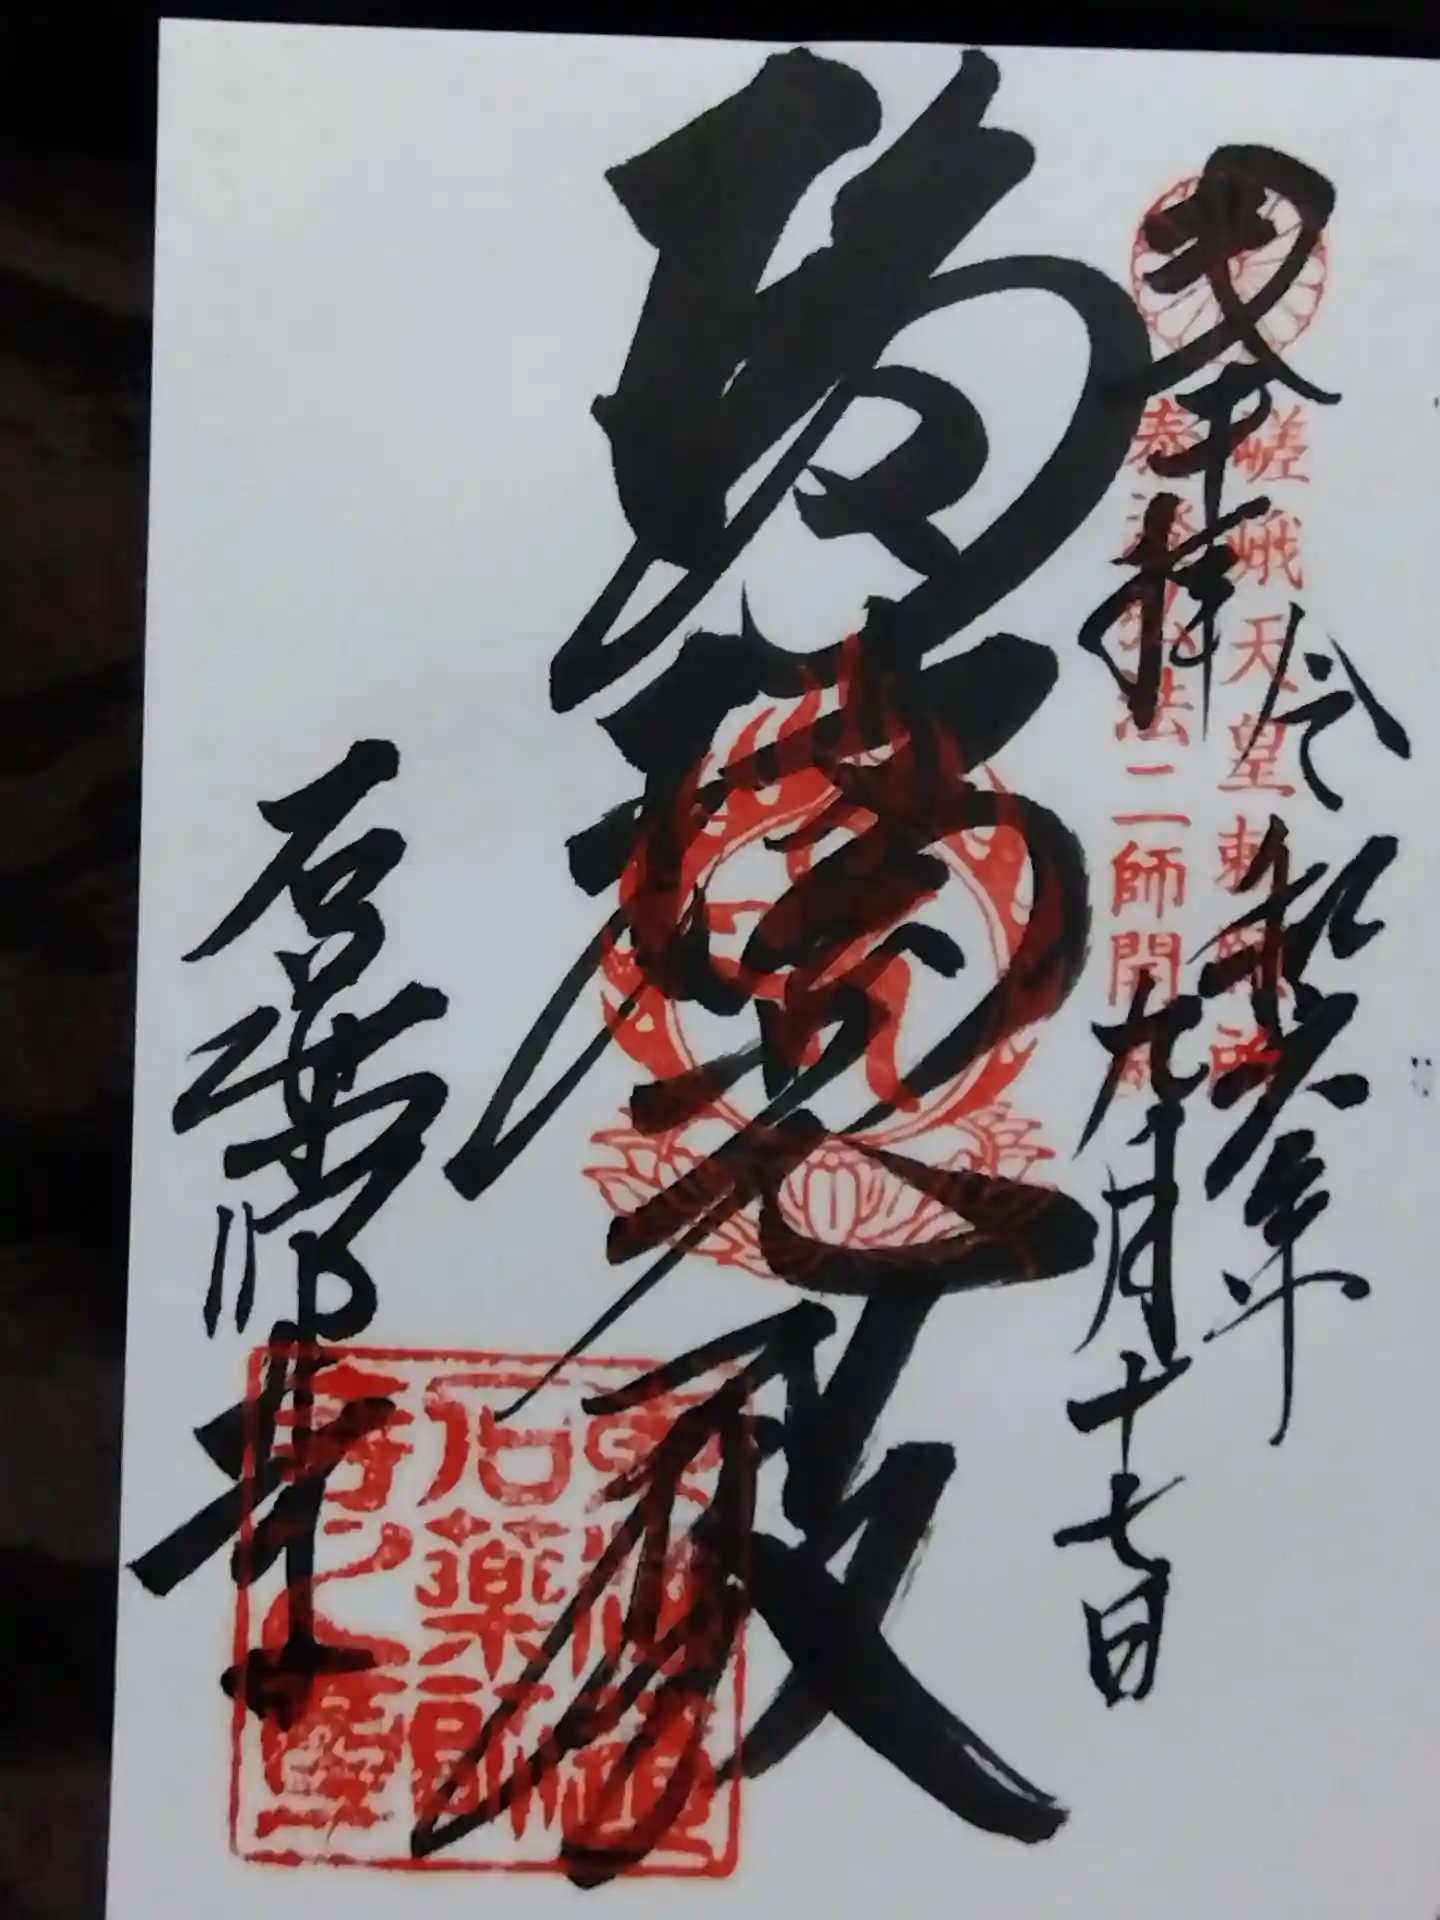 嵯峨天皇勅願所
泰澄弘法二師開
奉拝
令和六年
九月十七日
瑠璃殿
石薬師寺
石薬師